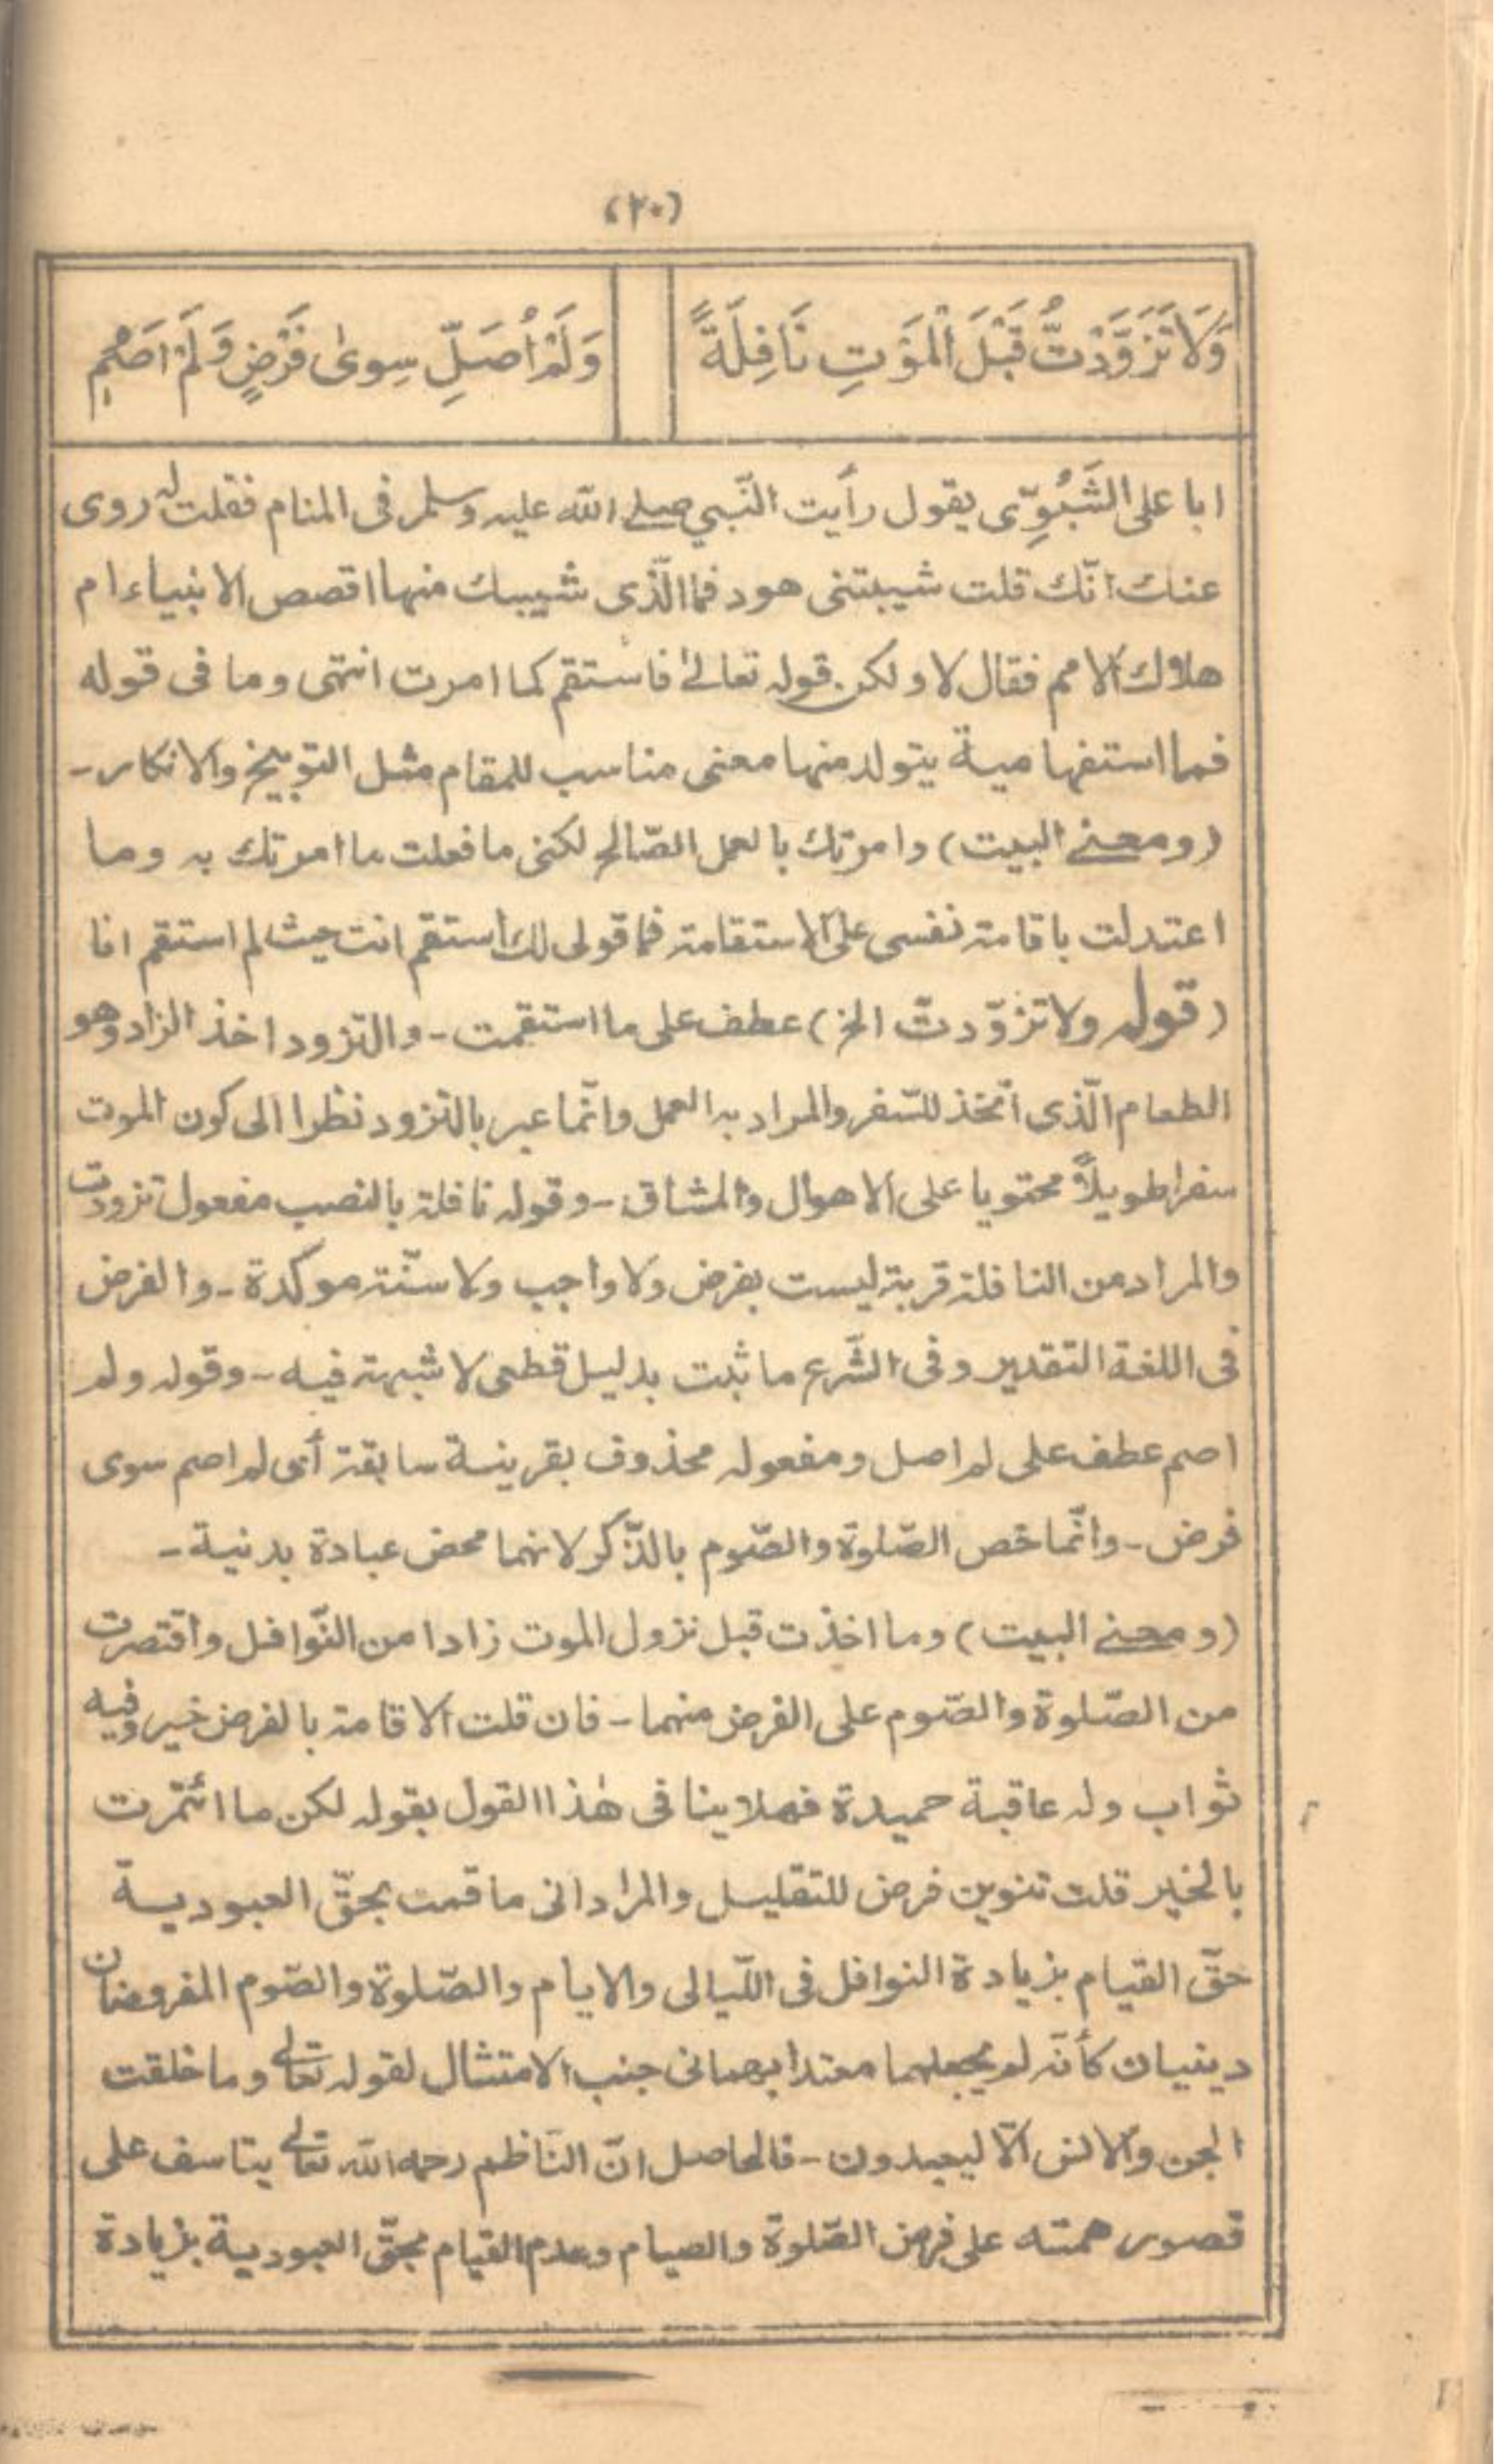 (٢٠)
وَلَا تَزَوَّدْتُّ قَبْلَ الْمَوْتِ نَافِلَةً
وَلَمْ اُصَلِّ سِوىٰ فَرْضٍ وَلَمْ اَصُمِ
ابا على الشَّبُوِّى يقول رأيت النّبي صلے الله عليه وسلم فى المنام فقلت له روى
عنك انّك قلت شيبتنى هود فما الّذى شيبك منها اقصص الانبياء ام
هلاك الامم فقال لا ولكن قوله تعالىٰ فاستقم كما امرت انتهى وما فى قوله
فما استفهامية يتولد منها معنى مناسب للمقام مثل التوبيخ والانكار ــ
(ومعنے البيت) وامرتك بالعمل الصّالح لكنى ما فعلت ما امرتك به وما
اعتدلت باقامة نفسى على الاستقامة فما قولى لك استقم انت حيث لم استقم انا
(قوله ولا تزوّدتّ الخ) عطف على ما استقمت ـ والتزود اخذ الزاد وهو
الطعام الّذى اتّخذ للسّفر والمراد به العمل وانّما عبر بالتزود نظرا الى كون الموت
سفرا طويلاً محتويا على الاهوال والمشاق ـ وقوله نافلة بالنصب مفعول تزودت
والمراد من النافلة قربة ليست بفرض ولا واجب ولا سنّة موكدة ـ والفرض
فى اللغة التقدير وفى الشّرع ما ثبت بدليل قطعى لا شبهة فيه ـ وقوله ولم
اصم عطف على لم اصل ومفعوله محذوف بقرينة سابقة أى لم اصم سوى
فرض ـ وانّما خص الصّلوة والصّوم بالذّكر لانهما محض عبادة بدنية ـ
(ومعنے البيت) وما اخذت قبل نزول الموت زادا من النّوافل واقتصرت
من الصّلوة والصّوم على الفرض منهما ـ فان قلت الاقامة بالفرض خير وفيه
ثواب وله عاقبة حميدة فهلا ينافى هٰذا القول بقوله لكن ما ائتمرت
بالخير قلت تنوين فرض للتقليل والمراد انى ما قمت بحقّ العبودية
حقّ القيام بزيادة النوافل فى اللّيالى والايام والصّلوة والصّوم المفروضان
دينيان كأنّه لم يجعلهما معتدا بهما فى جنب الامتثال لقوله تعالے وما خلقت
الجن والانس الّا ليعبدون ـ فالحاصل انّ النّاظم رحمه الله تعالے يتاسف على
قصور همته على فرض الصّلوة والصيام وعدم القيام بحقّ العبودية بزيادة